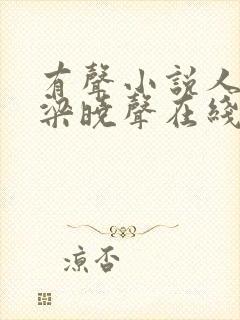 有聲小說人
梁曉聲在綫
涼否